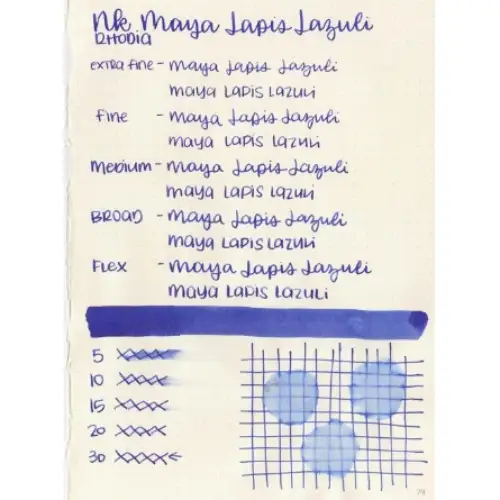 Nk Maya Lapis Lazuli
RHODIA
EXTRA FINE - Maya Lapis Lazuli
MAYA LAPIS LAZULI
FINE - Maya Lapis Lazuli
MAYA LAPIS LAZULI
MEDIUM - Maya Lapis Lazuli
MAYA LAPIS LAZULI
BROAD - Maya Lapis Lazuli
MAYA LAPIS LAZULI
FLEX - Maya Lapis Lazuli
MAYA LAPIS LAZULI
5 XXXXX
10 XXXXX
15 XXXX
20 XXXX
30 XXXX←
79